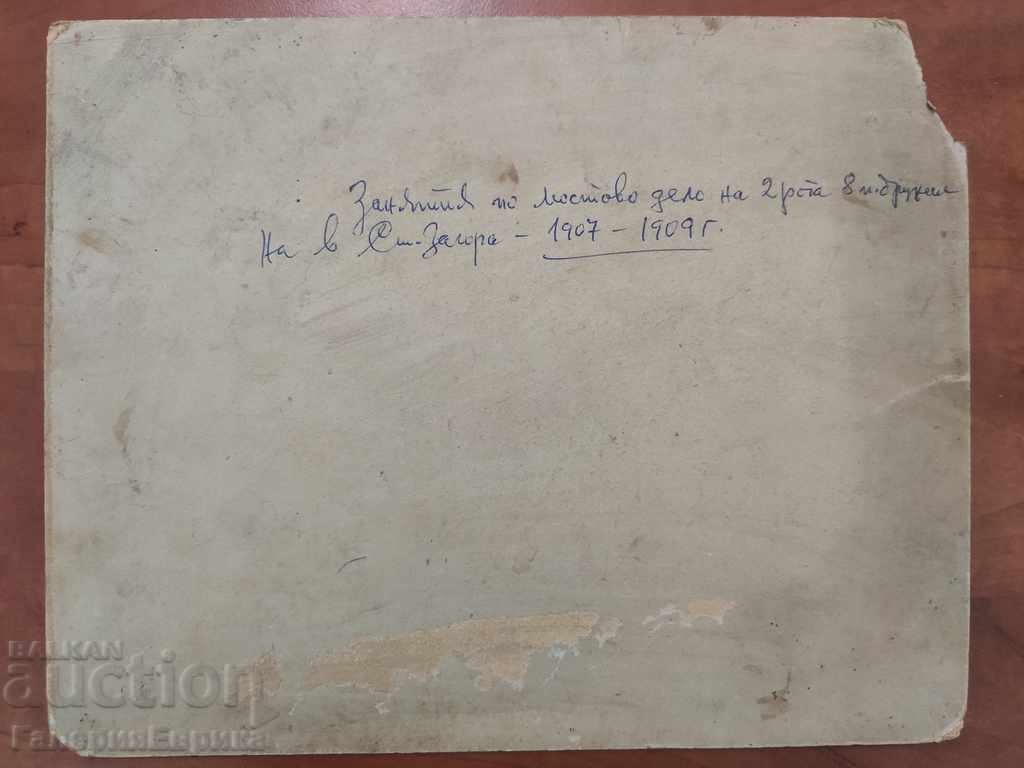 Занятия по мостово дело на 2 рота 8 п. дружи
на в Ст. Загора - 1907 - 1909 г.
BALKAN
auction
ГалерияЕврика